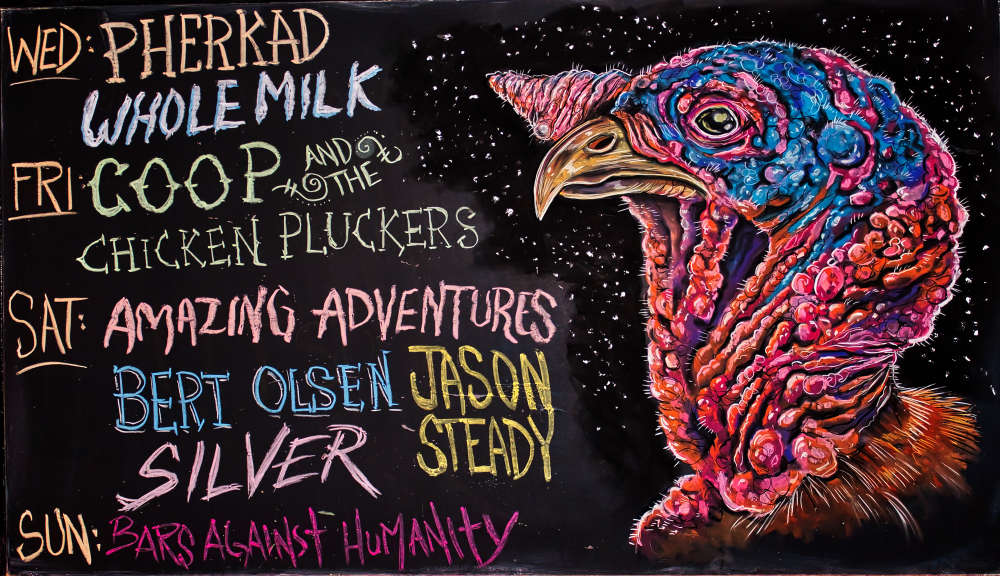 WED: PHERKAD
WHOLE MILK
FRI: COOP AND THE
CHICKEN PLUCKERS
SAT: AMAZING ADVENTURES
BERT OLSEN JASON STEADY
SILVER
SUN: BARS AGAINST HUMANITY